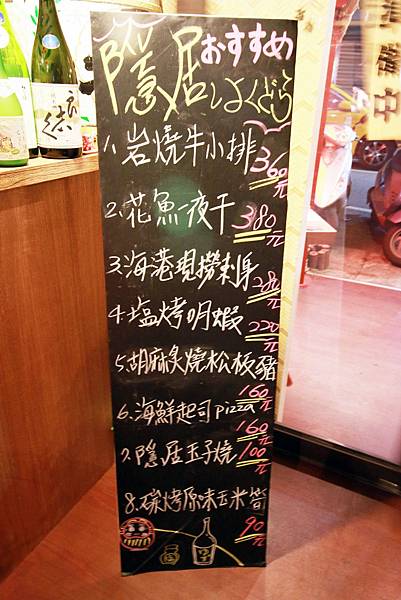 おすすめ
隱居しょくどう
1.岩燒牛小排360元
2.花魚一夜干380元
3.海港現撈刺身280元
4.塩烤明蝦220元
5.胡麻炙燒松板豬160元
6.海鮮起司pizza160元
7.隱居玉子燒100元
8.碳烤原味玉米筍90元